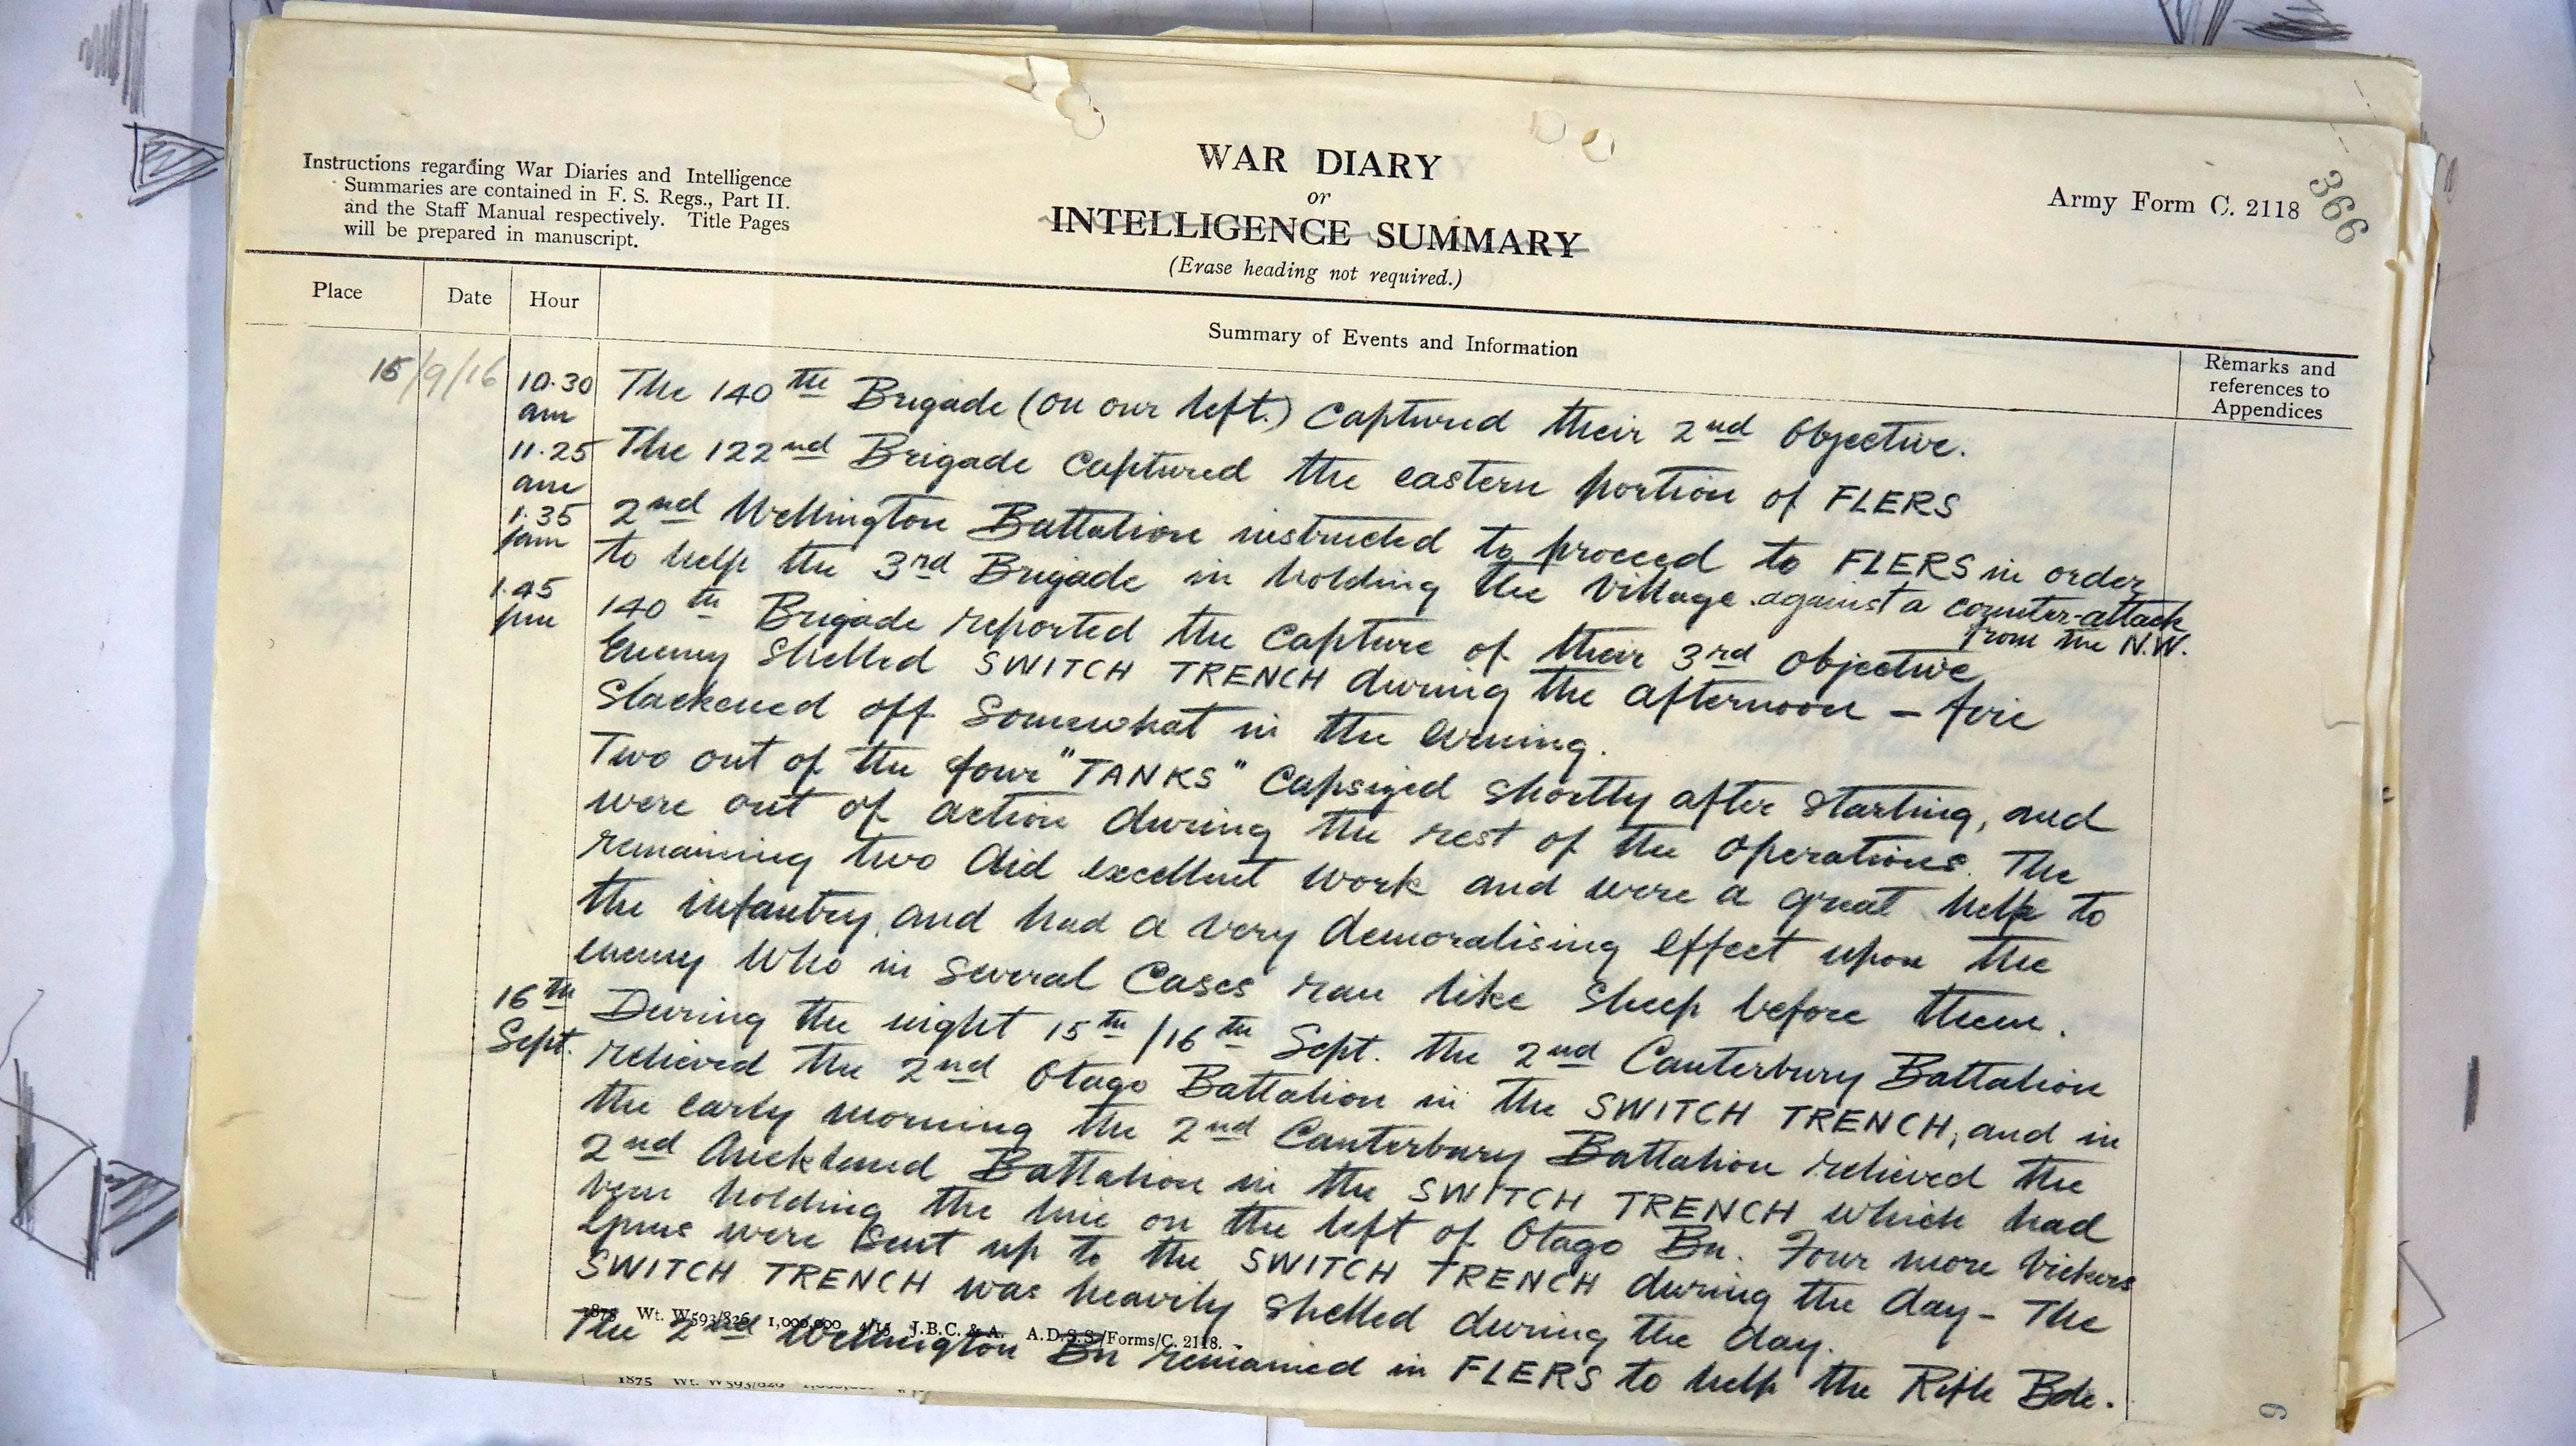 Instructions regarding War Diaries and Intelligence
Summaries are contained in F. S. Regs., Part II.
and the Staff Manual respectively. Title Pages
will be prepared in manuscript.
WAR DIARY
or
INTELLIGENCE SUMMARY
(Erase heading not required.)
Army Form C. 2118
366
Place
Date
Hour
Summary of Events and Information
Remarks and
references to
Appendices
15/9/16
10.30 am
The 140th Brigade (on our left.) Captured their 2nd Objective.
11.25 am
The 122nd Brigade captured the eastern portion of FLERS
1.35 pm
2nd Wellington Battalion instructed to proceed to FLERS in order
to help the 3rd Brigade in holding the village against a counter-attack
from the N.W.
1.45 pm
140th Brigade reported the capture of their 3rd Objective
Enemy shelled SWITCH TRENCH during the afternoon – fire
Slackened off somewhat in the evening.
Two out of the four "TANKS" Capsized shortly after starting, and
were out of action during the rest of the operations. The
remaining two did excellent work and were a great help to
the infantry, and had a very demoralising effect upon the
enemy who in several cases ran like sheep before them.
16th Sept.
During the night 15th/16th Sept. the 2nd Canterbury Battalion
relieved the 2nd Otago Battalion in the SWITCH TRENCH, and in
the early morning the 2nd Canterbury Battalion relieved the
2nd Auckland Battalion in the SWITCH TRENCH which had
been holding the line on the left of Otago Bn. Four more Vickers
guns were sent up to the SWITCH TRENCH during the day – The
SWITCH TRENCH was heavily shelled during the day.
The 2nd Wellington Bn remained in FLERS to help the Rifle Bde.
1875 Wt. W593/826 1,000,000 4/15 J.B.C. & A. A.D.S.S./Forms/C. 2118.
1875 Wt. W593/826
9